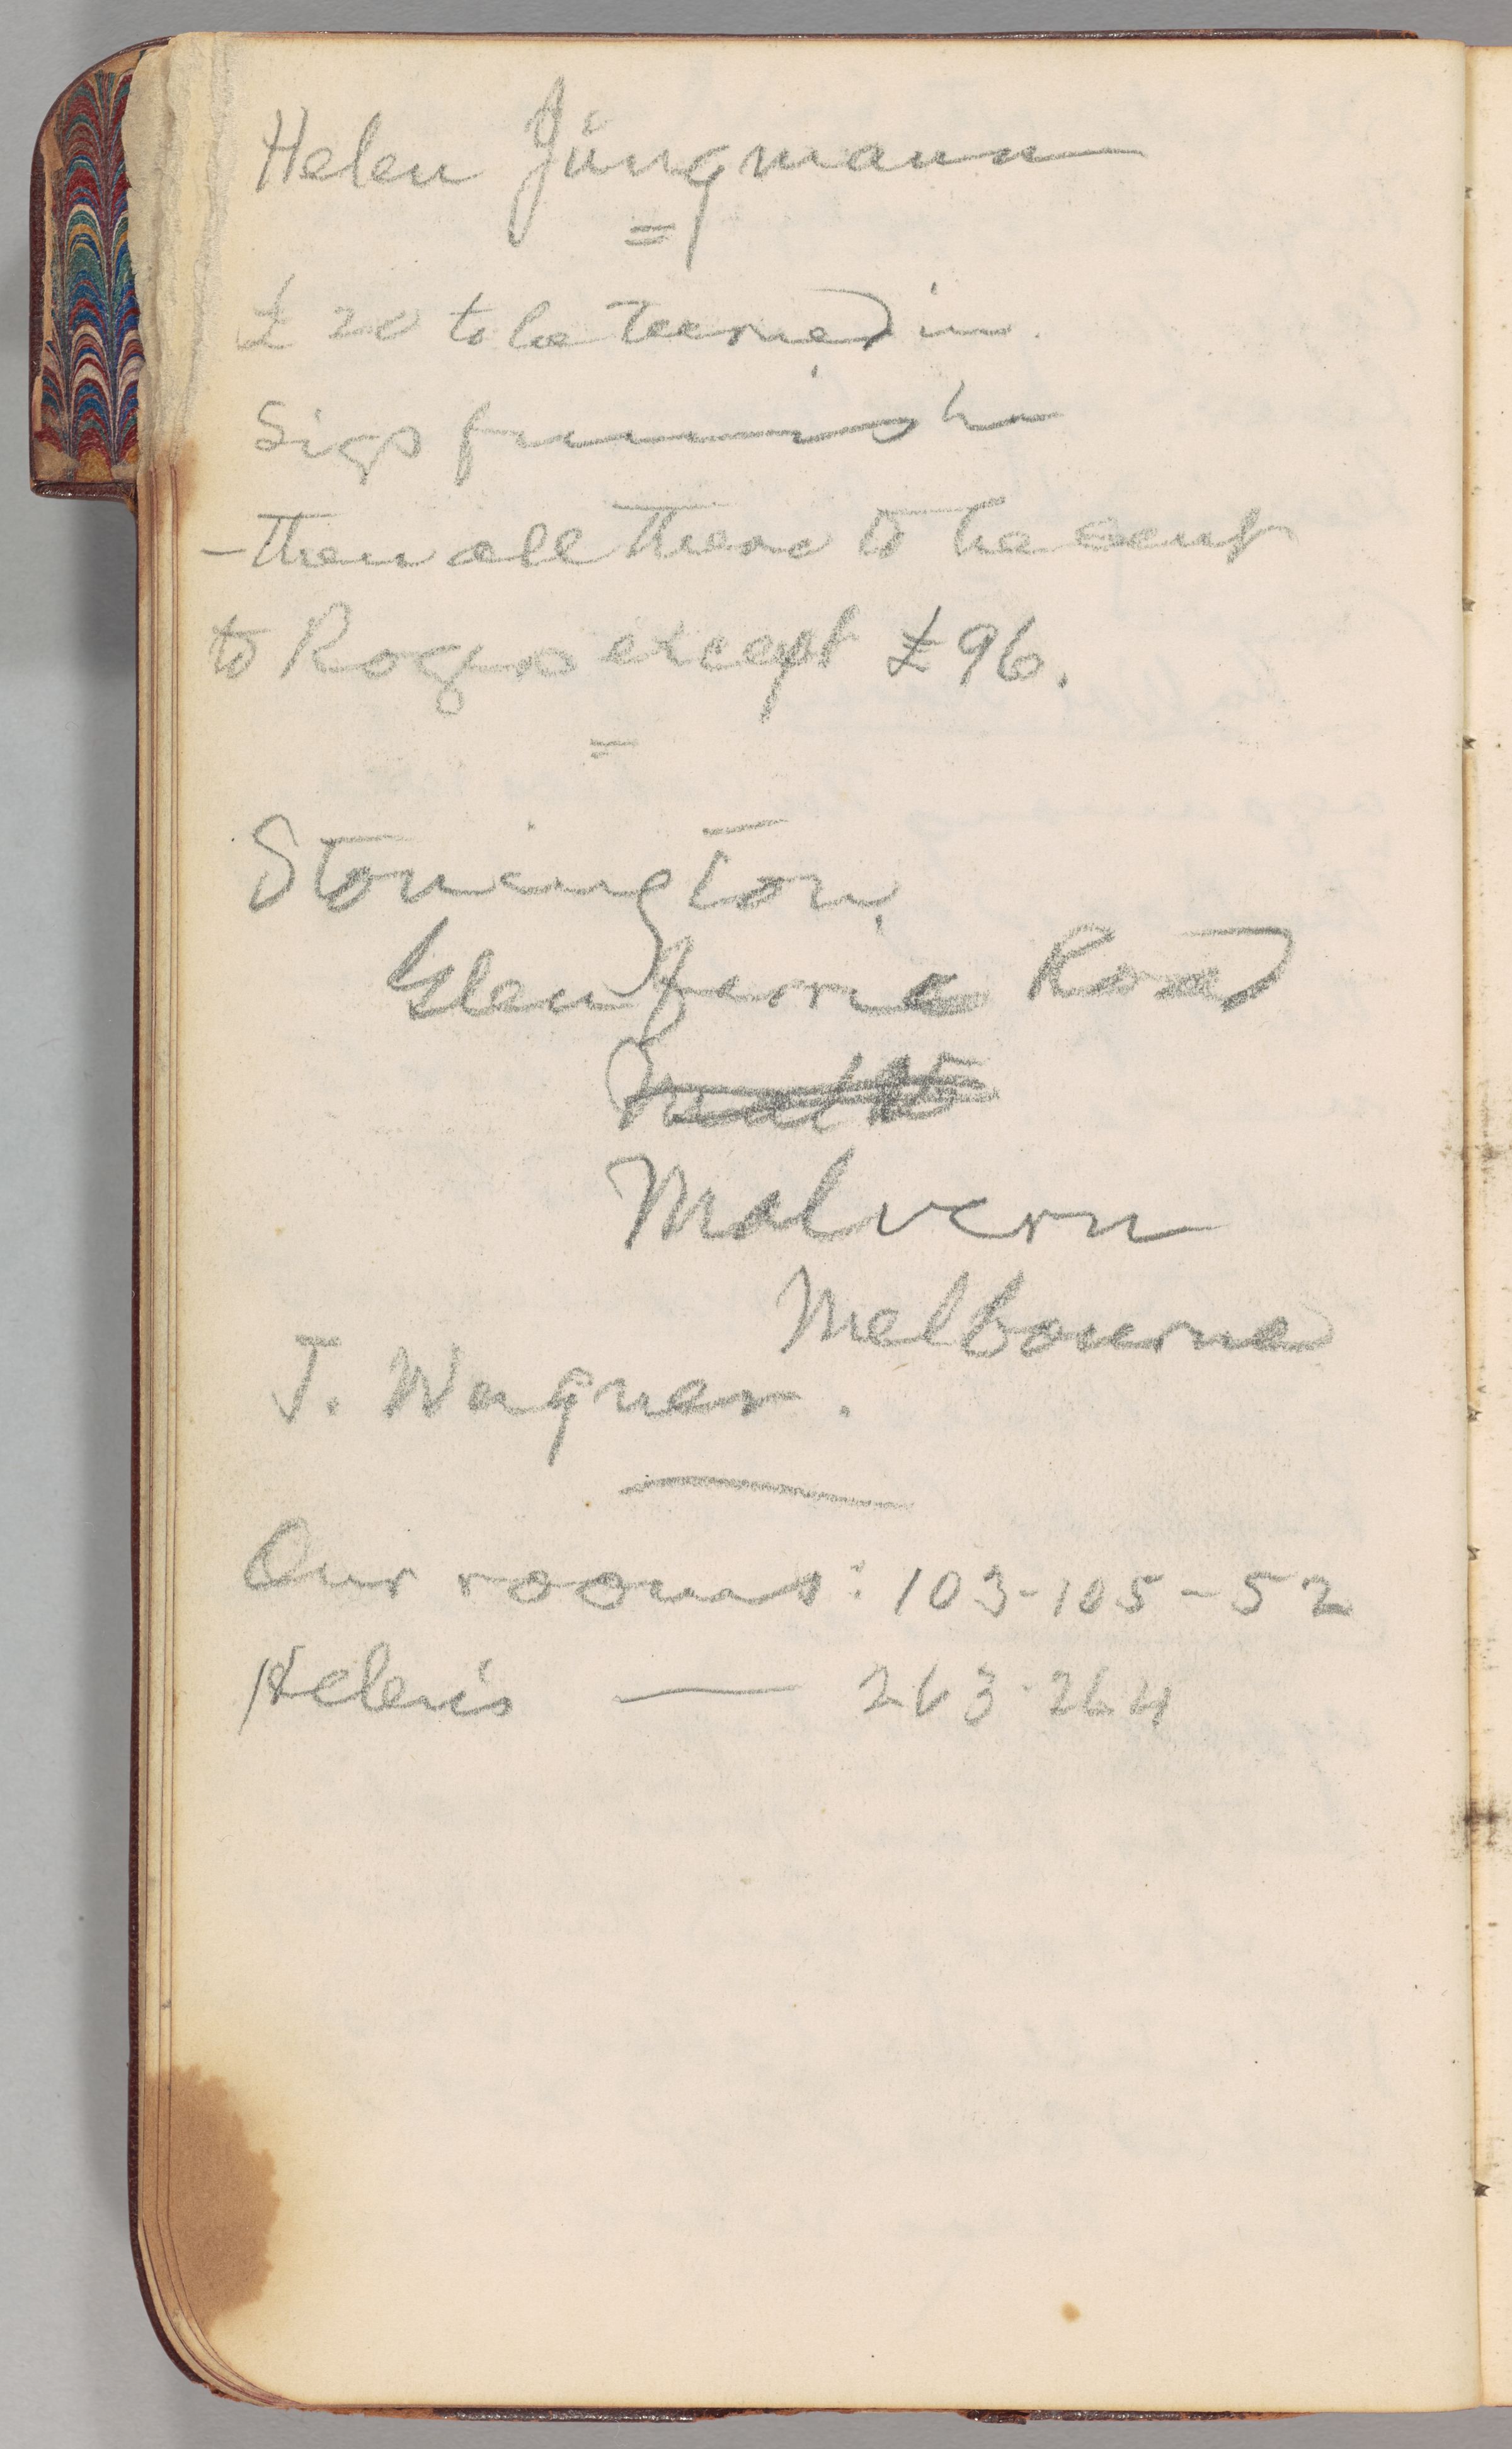 Helen Jüngmann
=
£20 to be turned in.
Sigs furnish
- then all there to be sent
to Rogers except £96.
=
Stonington,
Glenferrie Road
Malvern
Melbourne
J. Wagner.
Our rooms: 103-105-52
Helen's — 263-264